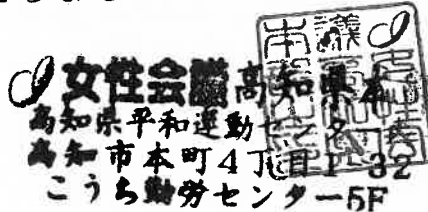 女性会議高知県本
高知県平和運動センター
高知市本町4丁目1-32
こうち勤労センター5F